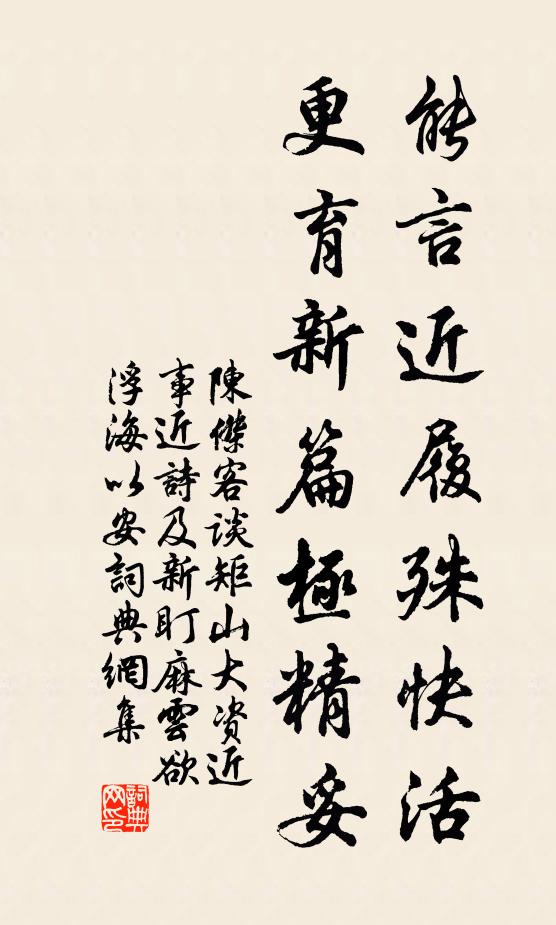 能言近履殊快活
更育新篇極精妥
陳傑客談矩山大资近
事近詩及新盯麻雲欲
浮海以安詞典網集
詞典网印